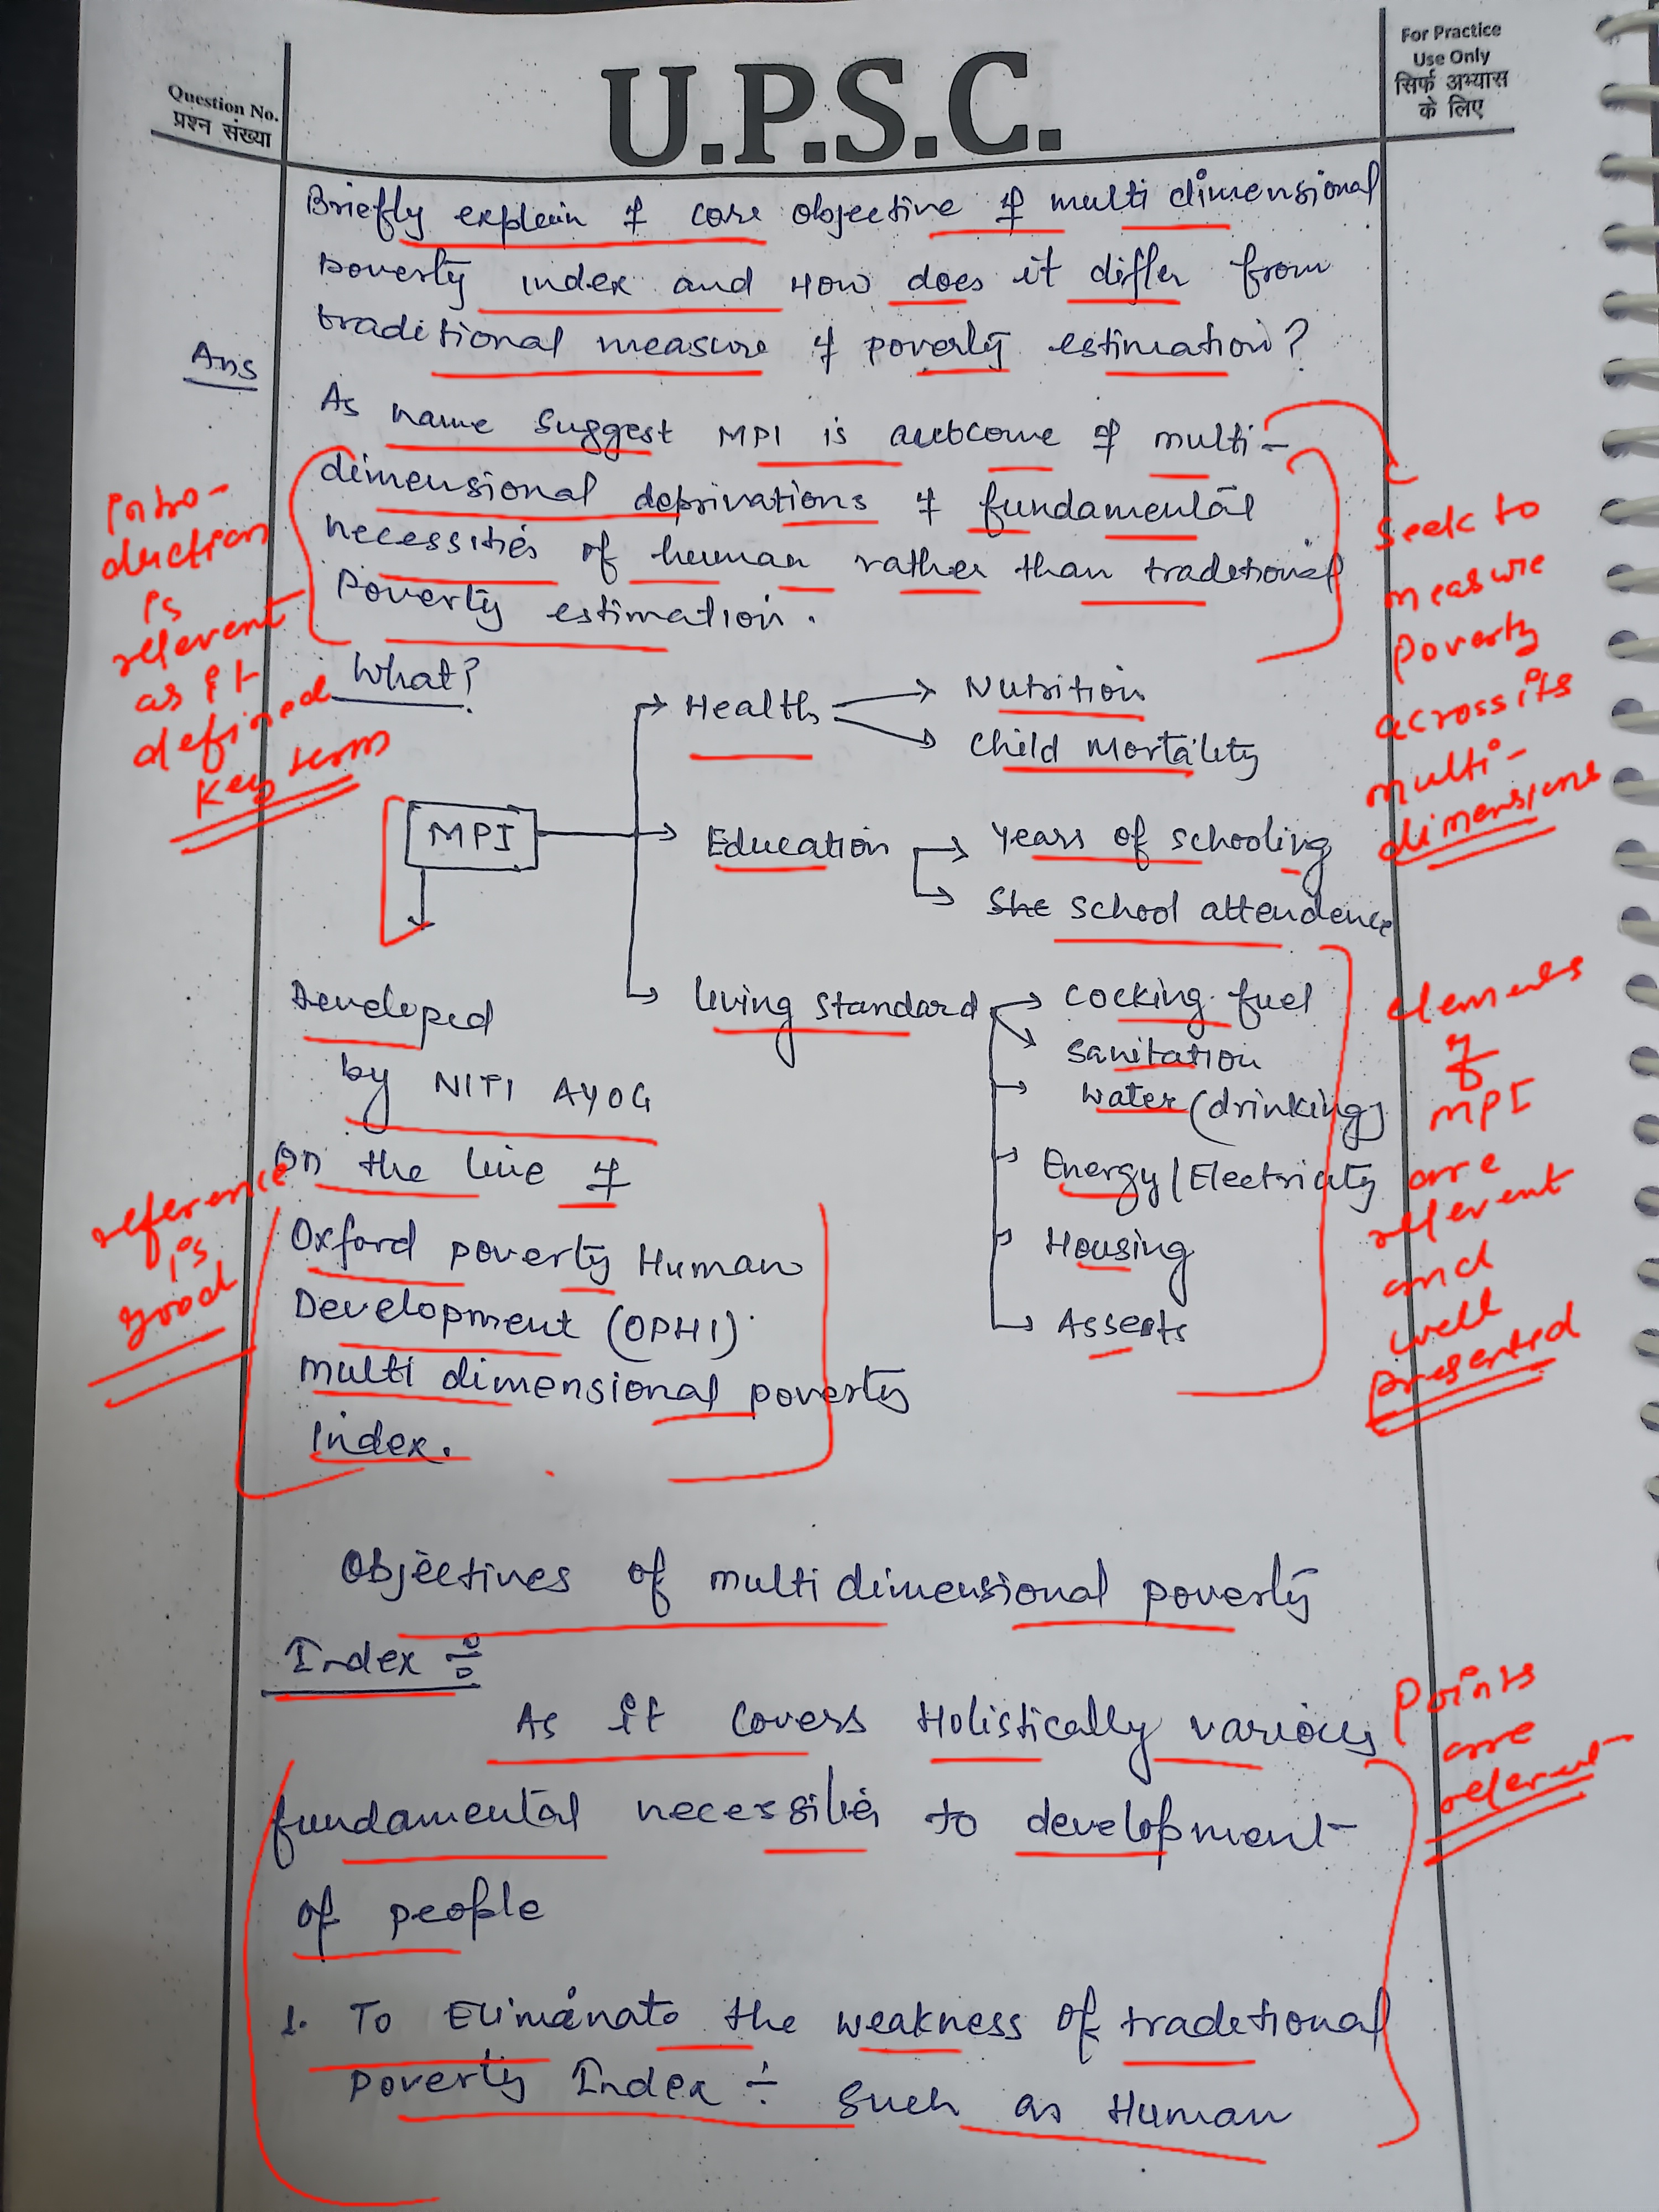 Question No.
प्रश्न संख्या
U.P.S.C.
For Practice
Use Only
सिर्फ अभ्यास
के लिए
Briefly explain of core objective of multi dimensional
poverty index and How does it differ from
traditional measure of poverty estimation?
Ans
As name suggest MPI is outcome of multi-
dimensional deprivations of fundamental
necessities of human rather than traditional
Poverty estimation.
Intro-
duction
is
relevent
as it
defined
key term
Seek to
measure
poverty
across its
multi-
dimensions
What?
MPI
Health
Nutrition
Child Mortality
Education
Years of schooling
She school attendence
living standard
Cocking fuel
Sanitation
Water (drinking)
Energy/Electricity
Housing
Assets
Developed
by NITI AYOG
On the line of
Oxford poverty Human
Development (OPHI)
multi dimensional poverty
Index.
reference
is
good
elements
of
MPI
are
relevent
and
well
presented
Objectives of multidimensional poverty
Index ÷
As it covers Holistically various
fundamental necessities to development
of people
1. To Eliminate the weakness of traditional
poverty Index ÷ such as Human
Points
are
relevent